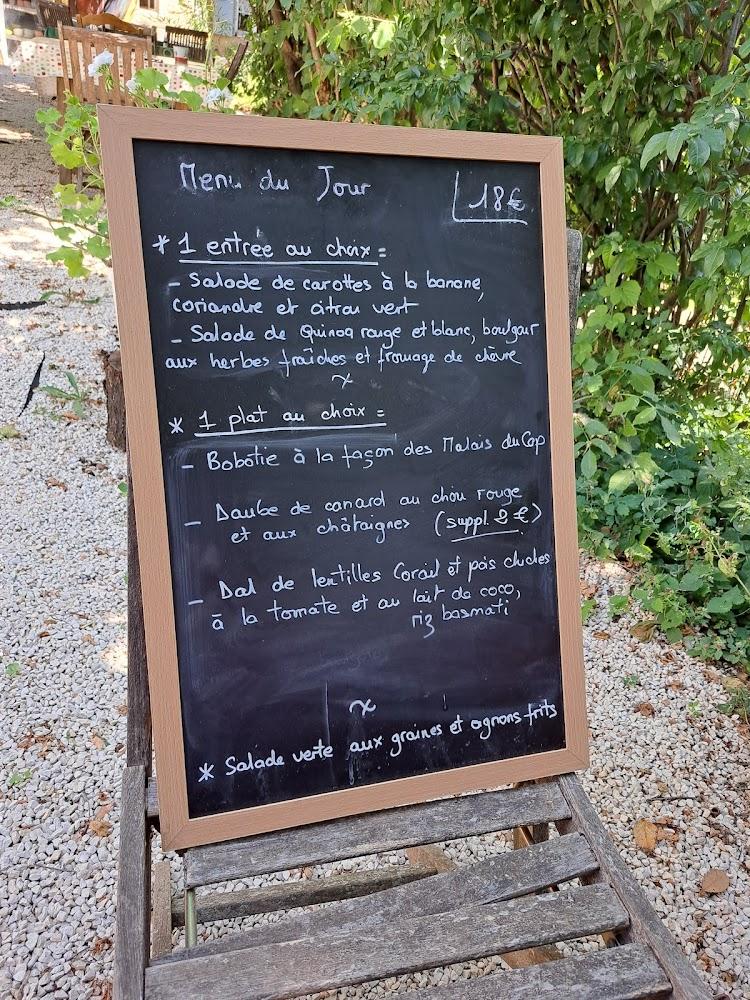 Menu du Jour
18€
* 1 entrée au choix =
- Salade de carottes à la banane,
coriandre et citron vert
- Salade de Quinoa rouge et blanc, boulgour
aux herbes fraîches et fromage de chèvre
~
* 1 plat au choix =
- Bobotie à la façon des Malais du Cap
- Daube de canard au chou rouge
et aux châtaignes (suppl. 2 €)
- Dal de lentilles Corail et pois chiches
à la tomate et au lait de coco,
riz basmati
~
* Salade verte aux graines et oignons frits